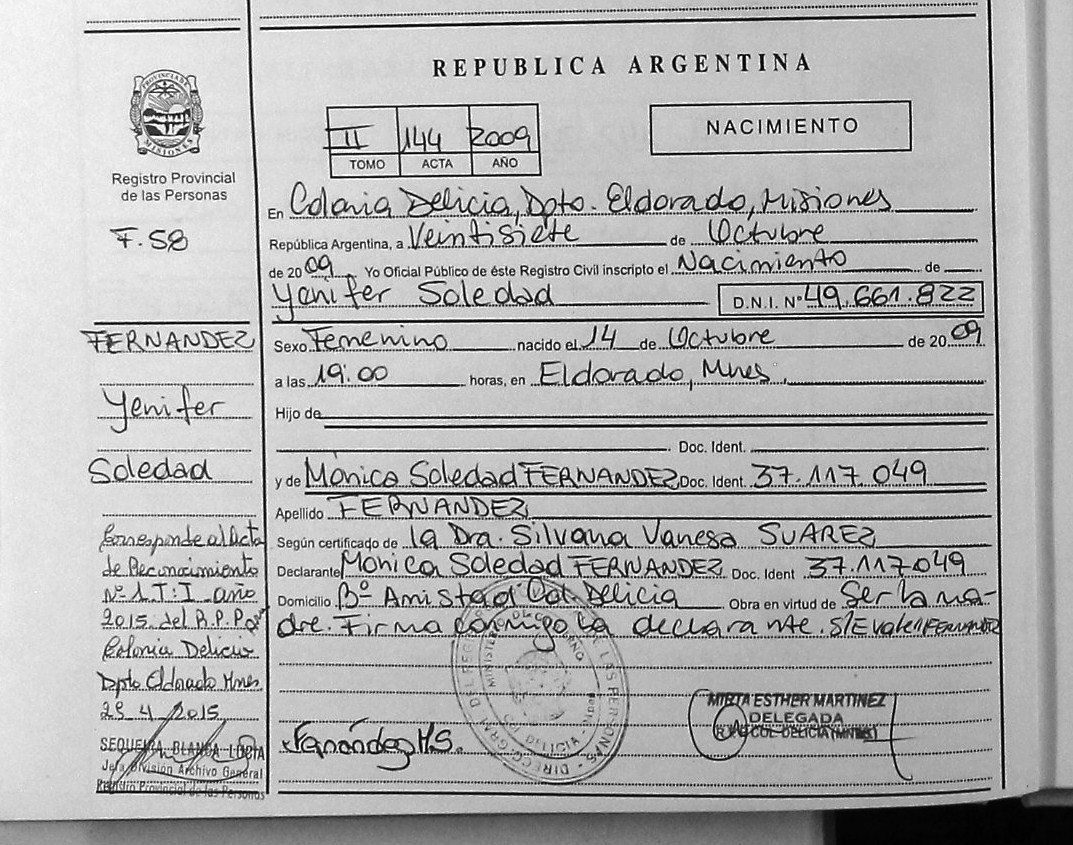 REPUBLICA ARGENTINA
PROVINCIA DE MISIONES
Registro Provincial
de las Personas
F. 58
II 144 2009
TOMO ACTA AÑO
NACIMIENTO
En Colonia Delicia, Dpto. Eldorado, Misiones
República Argentina, a Veintisiete de Octubre
de 2009 Yo Oficial Público de éste Registro Civil inscripto el Nacimiento de
Yenifer Soledad D.N.I. Nº 49.661.822
Sexo Femenino nacido el 14 de Octubre de 2009
a las 19:00 horas, en Eldorado, Mnes.
Hijo de
Doc. Ident.
y de Mónica Soledad FERNANDEZ Doc. Ident. 37.117.049
Apellido FERNANDEZ
Según certificado de la Dra. Silvana Vanesa SUAREZ
Declarante Mónica Soledad FERNANDEZ Doc. Ident 37.117.049
Domicilio Bº Amistad Col. Delicia Obra en virtud de Ser la ma-
dre. Firma conmigo la declarante. S/E Vale: FERNANDEZ
Fernández M.S.
MIRTA ESTHER MARTINEZ
DELEGADA
COL. DELICIA (MNES)
FERNANDEZ
Yenifer
Soledad
Corresponde al Acta
de Reconocimiento
Nº 1 T: I año
2015 del R.P.P.
Colonia Delicia
Dpto Eldorado Mnes.
4/2015
SEQUEIRA BLANCA LUCIA
Jefa División Archivo General
Registro Provincial de las Personas